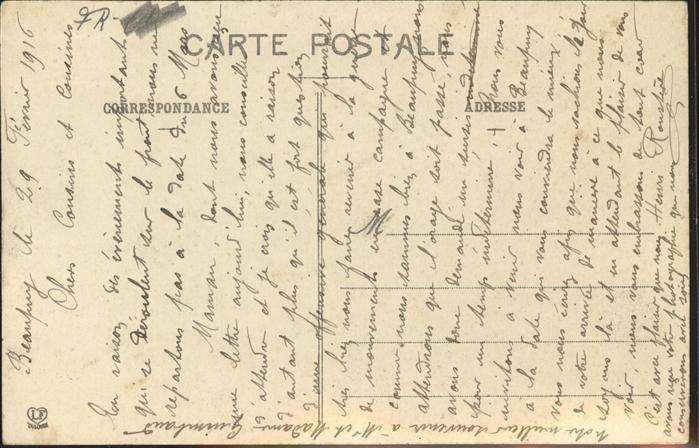 FR-
CARTE POSTALE
CORRESPONDANCE
ADRESSE
Beaupuy le 29 Février 1916
Chers Cousins et Cousines
En raison des évènements importants
qui se déroulent sur le front nous ne
repartons pas à la date du 6 Mars
Maman, dont nous avons reçu
une lettre aujourd'hui, nous conseille
d'attendre et je crois qu'elle a raison
d'autant plus qu'il est fort question
d'une offensive générale qui pourrait
très bien nous faire revenir à la guerre
de mouvements en rase campagne
comme nous sommes bien à Beaupuy nous
attendrons que l'orage soit passé, nous
avons donc demandé un sursis
pour un temps indéterminé. Nous vous
invitons à venir nous voir à Beaupuy
à la date qui vous conviendra le mieux
vous nous écrirez afin que nous sachions le jour
de votre arrivée de manière à ce que nous
soyons là et en attendant le plaisir de vous
voir, nous vous embrassons de tout cœur
Henri
C'est avec plaisir que nous
avons reçu votre photographie que nous
conserverons avec soin
notre meilleur souvenir à Mr et Madame
M
LF